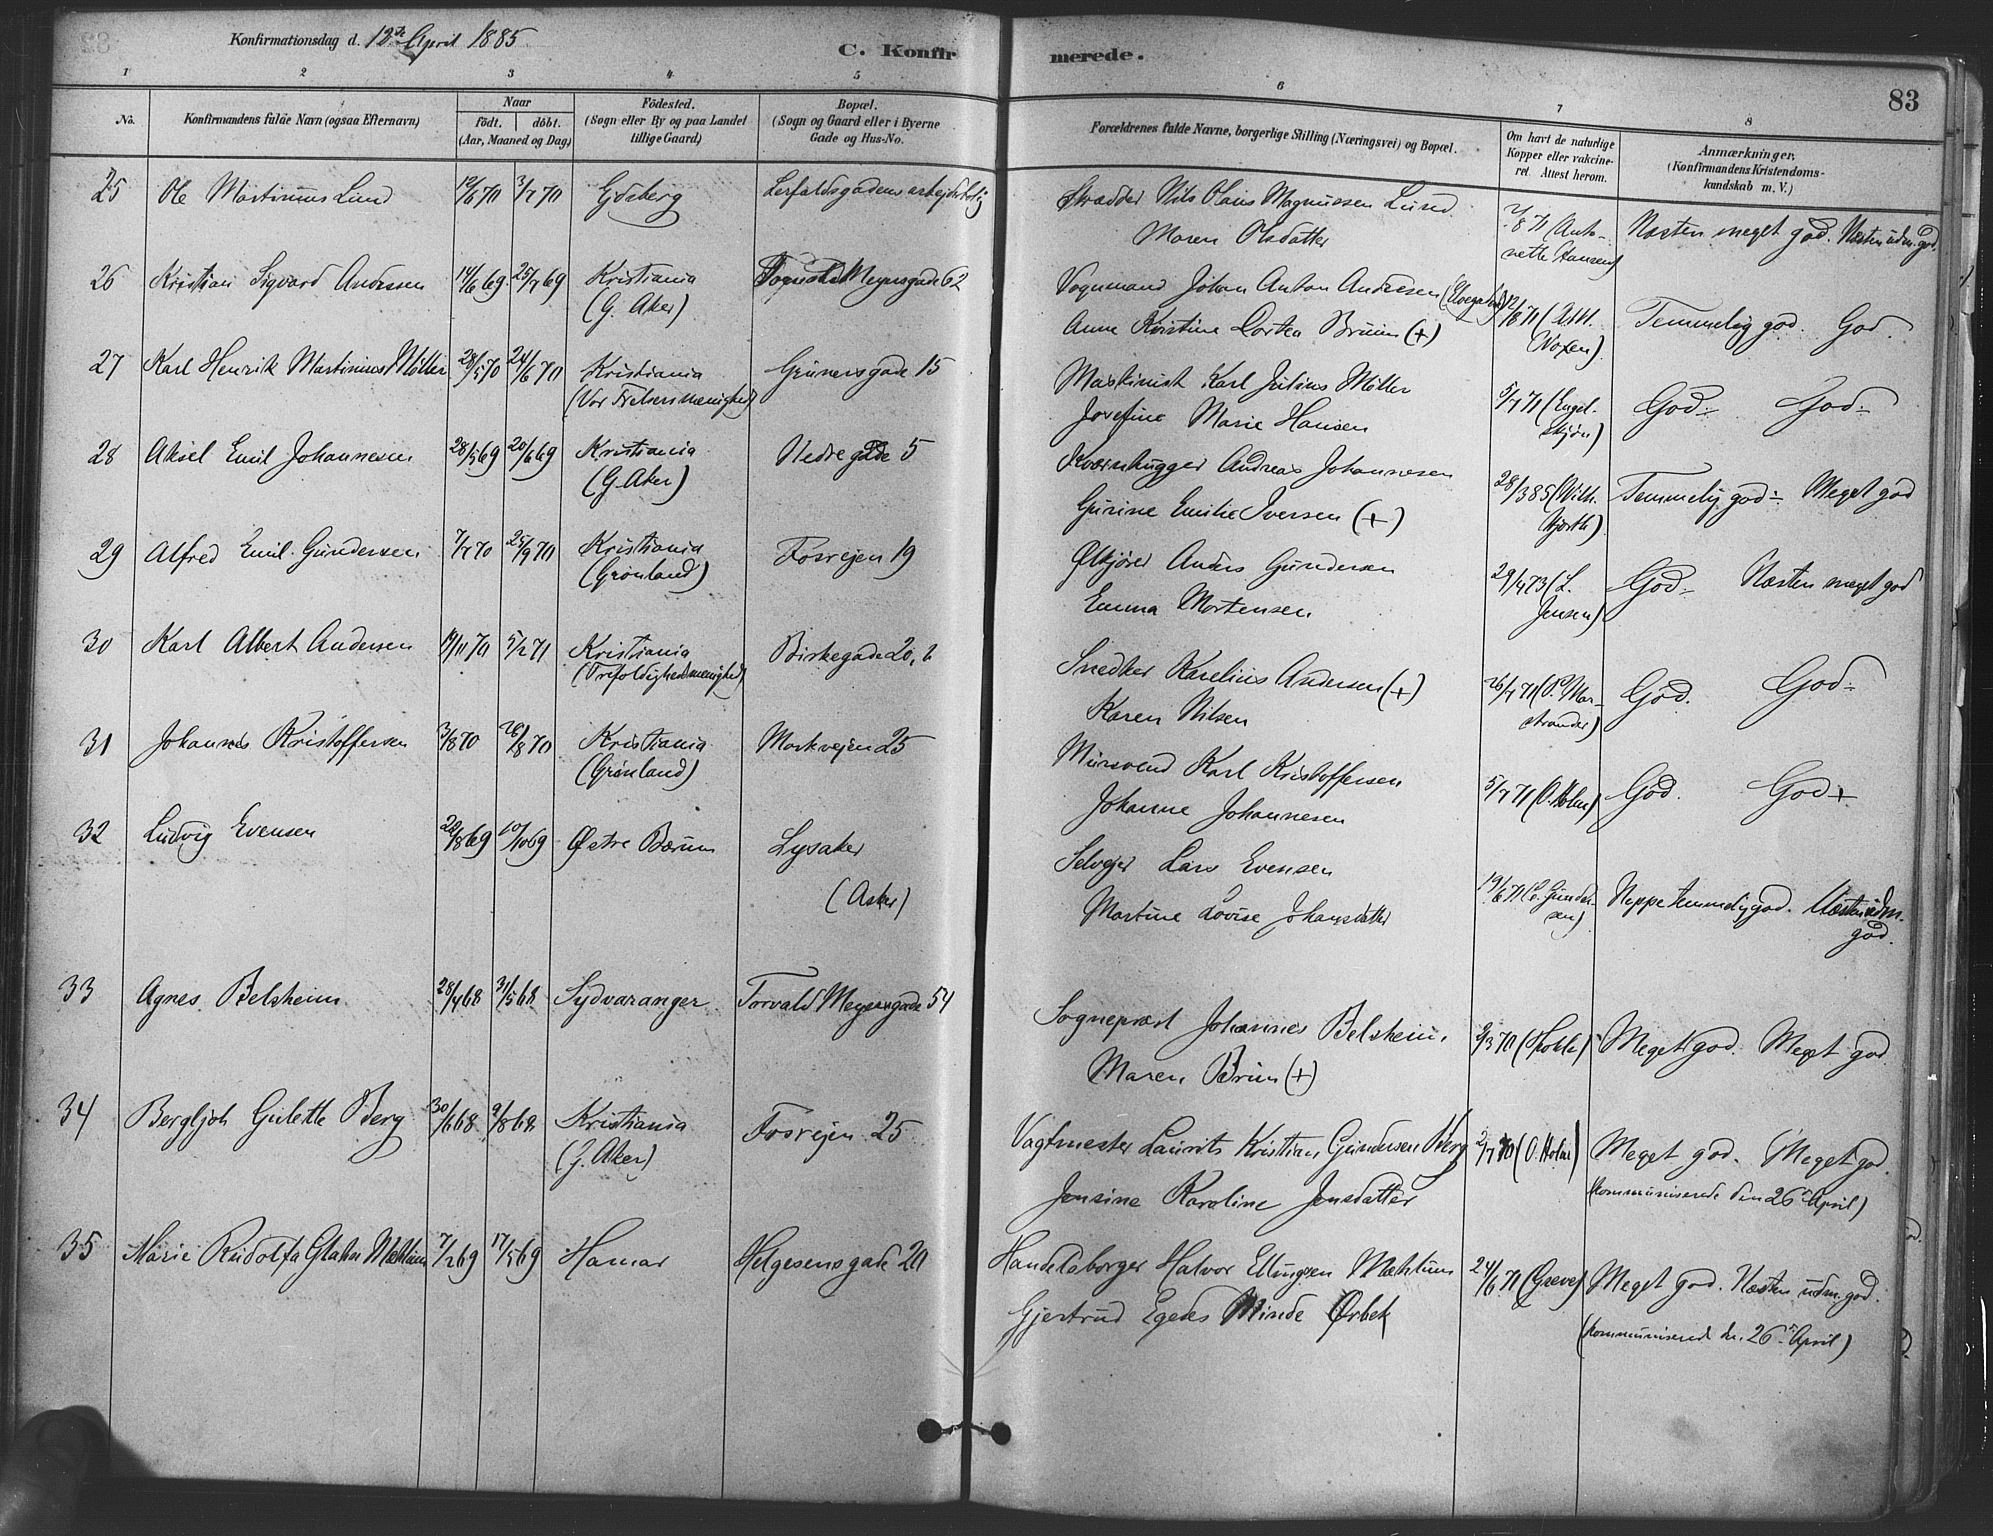 Konfirmationsdag d. 12te April 1885
C. Konfir merede.
83
1 2 3 4 5 6 7 8
No.
Konfirmandens fulde Navn (ogsaa Efternavn)
Naar
födt. döbt.
(Aar, Maaned og Dag)
Födested.
(Sogn eller By og paa Landet
tillige Gaard)
Bopæl.
(Sogn og Gaard eller i Byerne
Gade og Hus-No.
Forældrenes fulde Navne, borgerlige Stilling (Næringsvei) og Bopæl.
Om havt de naturlige
Kopper eller vakcine-
ret. Attest herom.
Anmærkninger,
(Konfirmandens Kristendoms-
kundskab m. V.)
25 Ole Martinius Lund 12/6 70 3/7 70 Lerfaldsgadens arbejderbolig Skrædder Nils Olaus Magnussen Lund
Maren Olsdatter
/8 71 (Anto-
nette Hansen)
Næsten meget god. Næsten udm. god.
26 Kristian Sigvard Andersen 14/6 69 25/7 69 Kristiania
(G. Aker)
Meyersgade 62
Vognmand Johan Anton Andresen
Anne Kristine Dortea Bruun (+)
Temmelig god. God.
27 Karl Henrik Martinius Möller 28/5 70 24/6 70 Kristiania
(Vor Frelsers menighed)
Grünersgade 15
Maskinist Karl Julius Möller
Josefine Marie Hansen
5/7 71 (Engel-
skjön)
God÷ God÷
28 Aksel Emil Johannesen 28/5 69 20/6 69 Kristiania
(G. Aker)
Nedregade 5
Kværnhugger Andreas Johannesen
Gurine Emilie Iversen (+)
28/3 85 (Wilh.
Hjorth)
Temmelig god÷ Meget god
29 Alfred Emil Gundersen 7/7 70 25/9 70 Kristiania
(Grønland)
Fosvejen 19
Ølkjører Anders Gundersen
Emma Mortensen
29/4 73 (L.
Jensen)
God÷ Næsten meget god
30 Karl Albert Andersen 19/11 70 5/2 71 Kristiania
(Trefoldighedsmenighed)
Birkegade 20, b
Snedker Karelius Andersen (+)
Karen Nilsen
26/7 71 (O. Mar-
strander)
God. God÷
31 Johannes Kristoffersen 3/8 70 26/8 70 Kristiania
(Grønland)
Markvejen 25
Mursvend Karl Kristoffersen
Johanne Johannesen
5/7 71 (O. Holm)
God. God+
32 Ludvig Evensen 22/8 69 10/10 69 Østre Bærum Lysaker
(Asker)
Selvejer Lars Evensen
Martine Lovise Johansdatter
19/6 71 (C. Gunder-
sen)
Neppe temmelig god. Næsten udm.
god.
33 Agnes Belsheim 28/4 68 31/5 68 Sydvaranger Torvald Meyersgade 54
Sogneprest Johannes Belsheim,
Maren Brun (+)
9/3 70
Meget god. Meget god
34 Bergljot Gulette Berg 30/6 68 9/8 68 Kristiania
(G. Aker)
Fosvejen 25
Vagtmester Laurits Kristian Gundersen Berg
Jensine Karoline Jensdatter
2/7 70 (O. Holm)
Meget god. Meget god.
(kommuniserede den 26de April)
35 Marie Rudolfa Glahn Mæhlum 7/2 69 17/5 69 Hamar Helgesensgade 20
Handelsborger Halvor Ellingsen Mæhlum
Gjertrud Egedes Minde Ørbek
24/6 71 (Greve)
Meget god. Næsten udm. god.
(kommuniserede den 26de April)